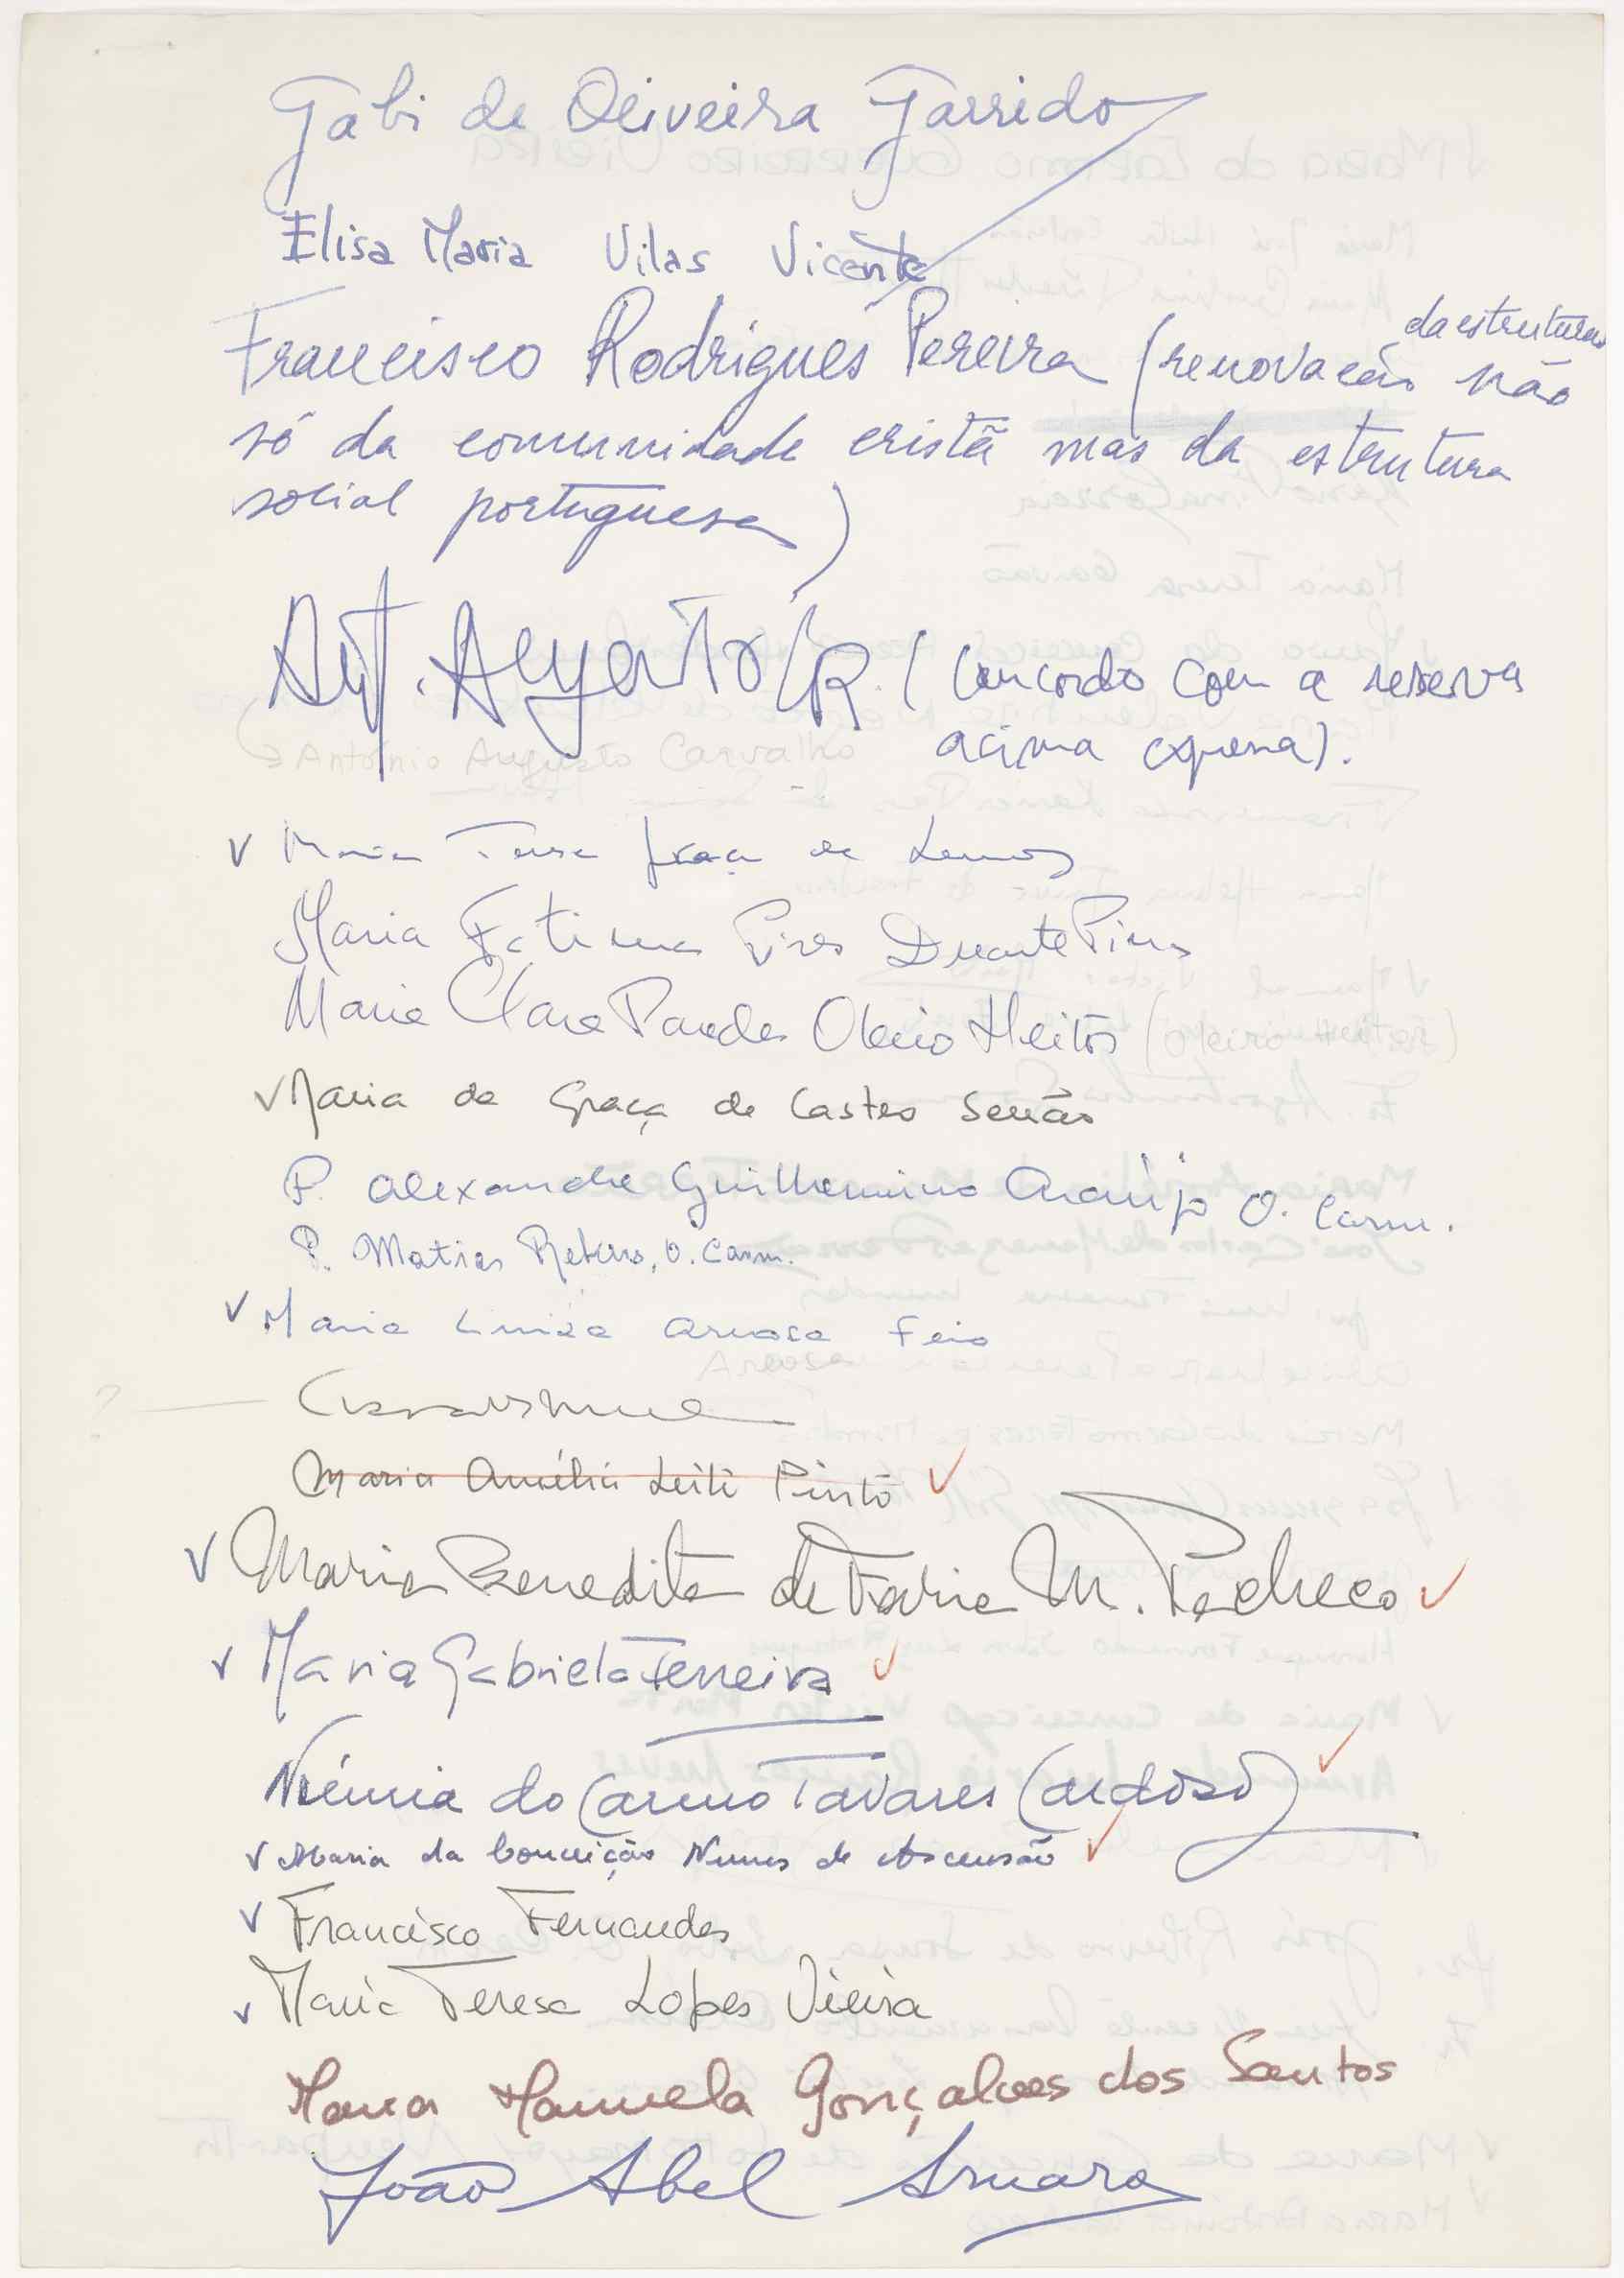 Gabi de Oliveira Garrido
Elisa Maria Vilas Vicente
Francisco Rodrigues Pereira (renovação da estrutura não
só da comunidade cristã mas da estrutura
social portuguesa)
Ant. Augusto C. (Concordo com a reserva
acima exposta).
António Augusto Carvalho
✓ Maria Teresa Graça de Lemos
Maria Fatima Pires Duarte Pires
Maria Clara Paredes Oleiro Heitor (Oleiro Heitor)
✓ Maria da Graça de Castro Serrão
P. Alexandre Guilhermino Araújo O. Carm.
P. Matias, O. Carm.
✓ Maria Luiza Areosa Feio
Areosa
?
Maria Amélia Leite Pinto ✓
✓ Maria Benedita de Faria M. Pacheco ✓
✓ Maria Gabriela Ferreira ✓
Noémia do Carmo Tavares Cardoso ✓
✓ Maria da Conceição Nunes de Ascensão ✓
✓ Francisco Fernandes
✓ Maria Teresa Lopes Vieira
Maria Manuela Gonçalves dos Santos
João Abel